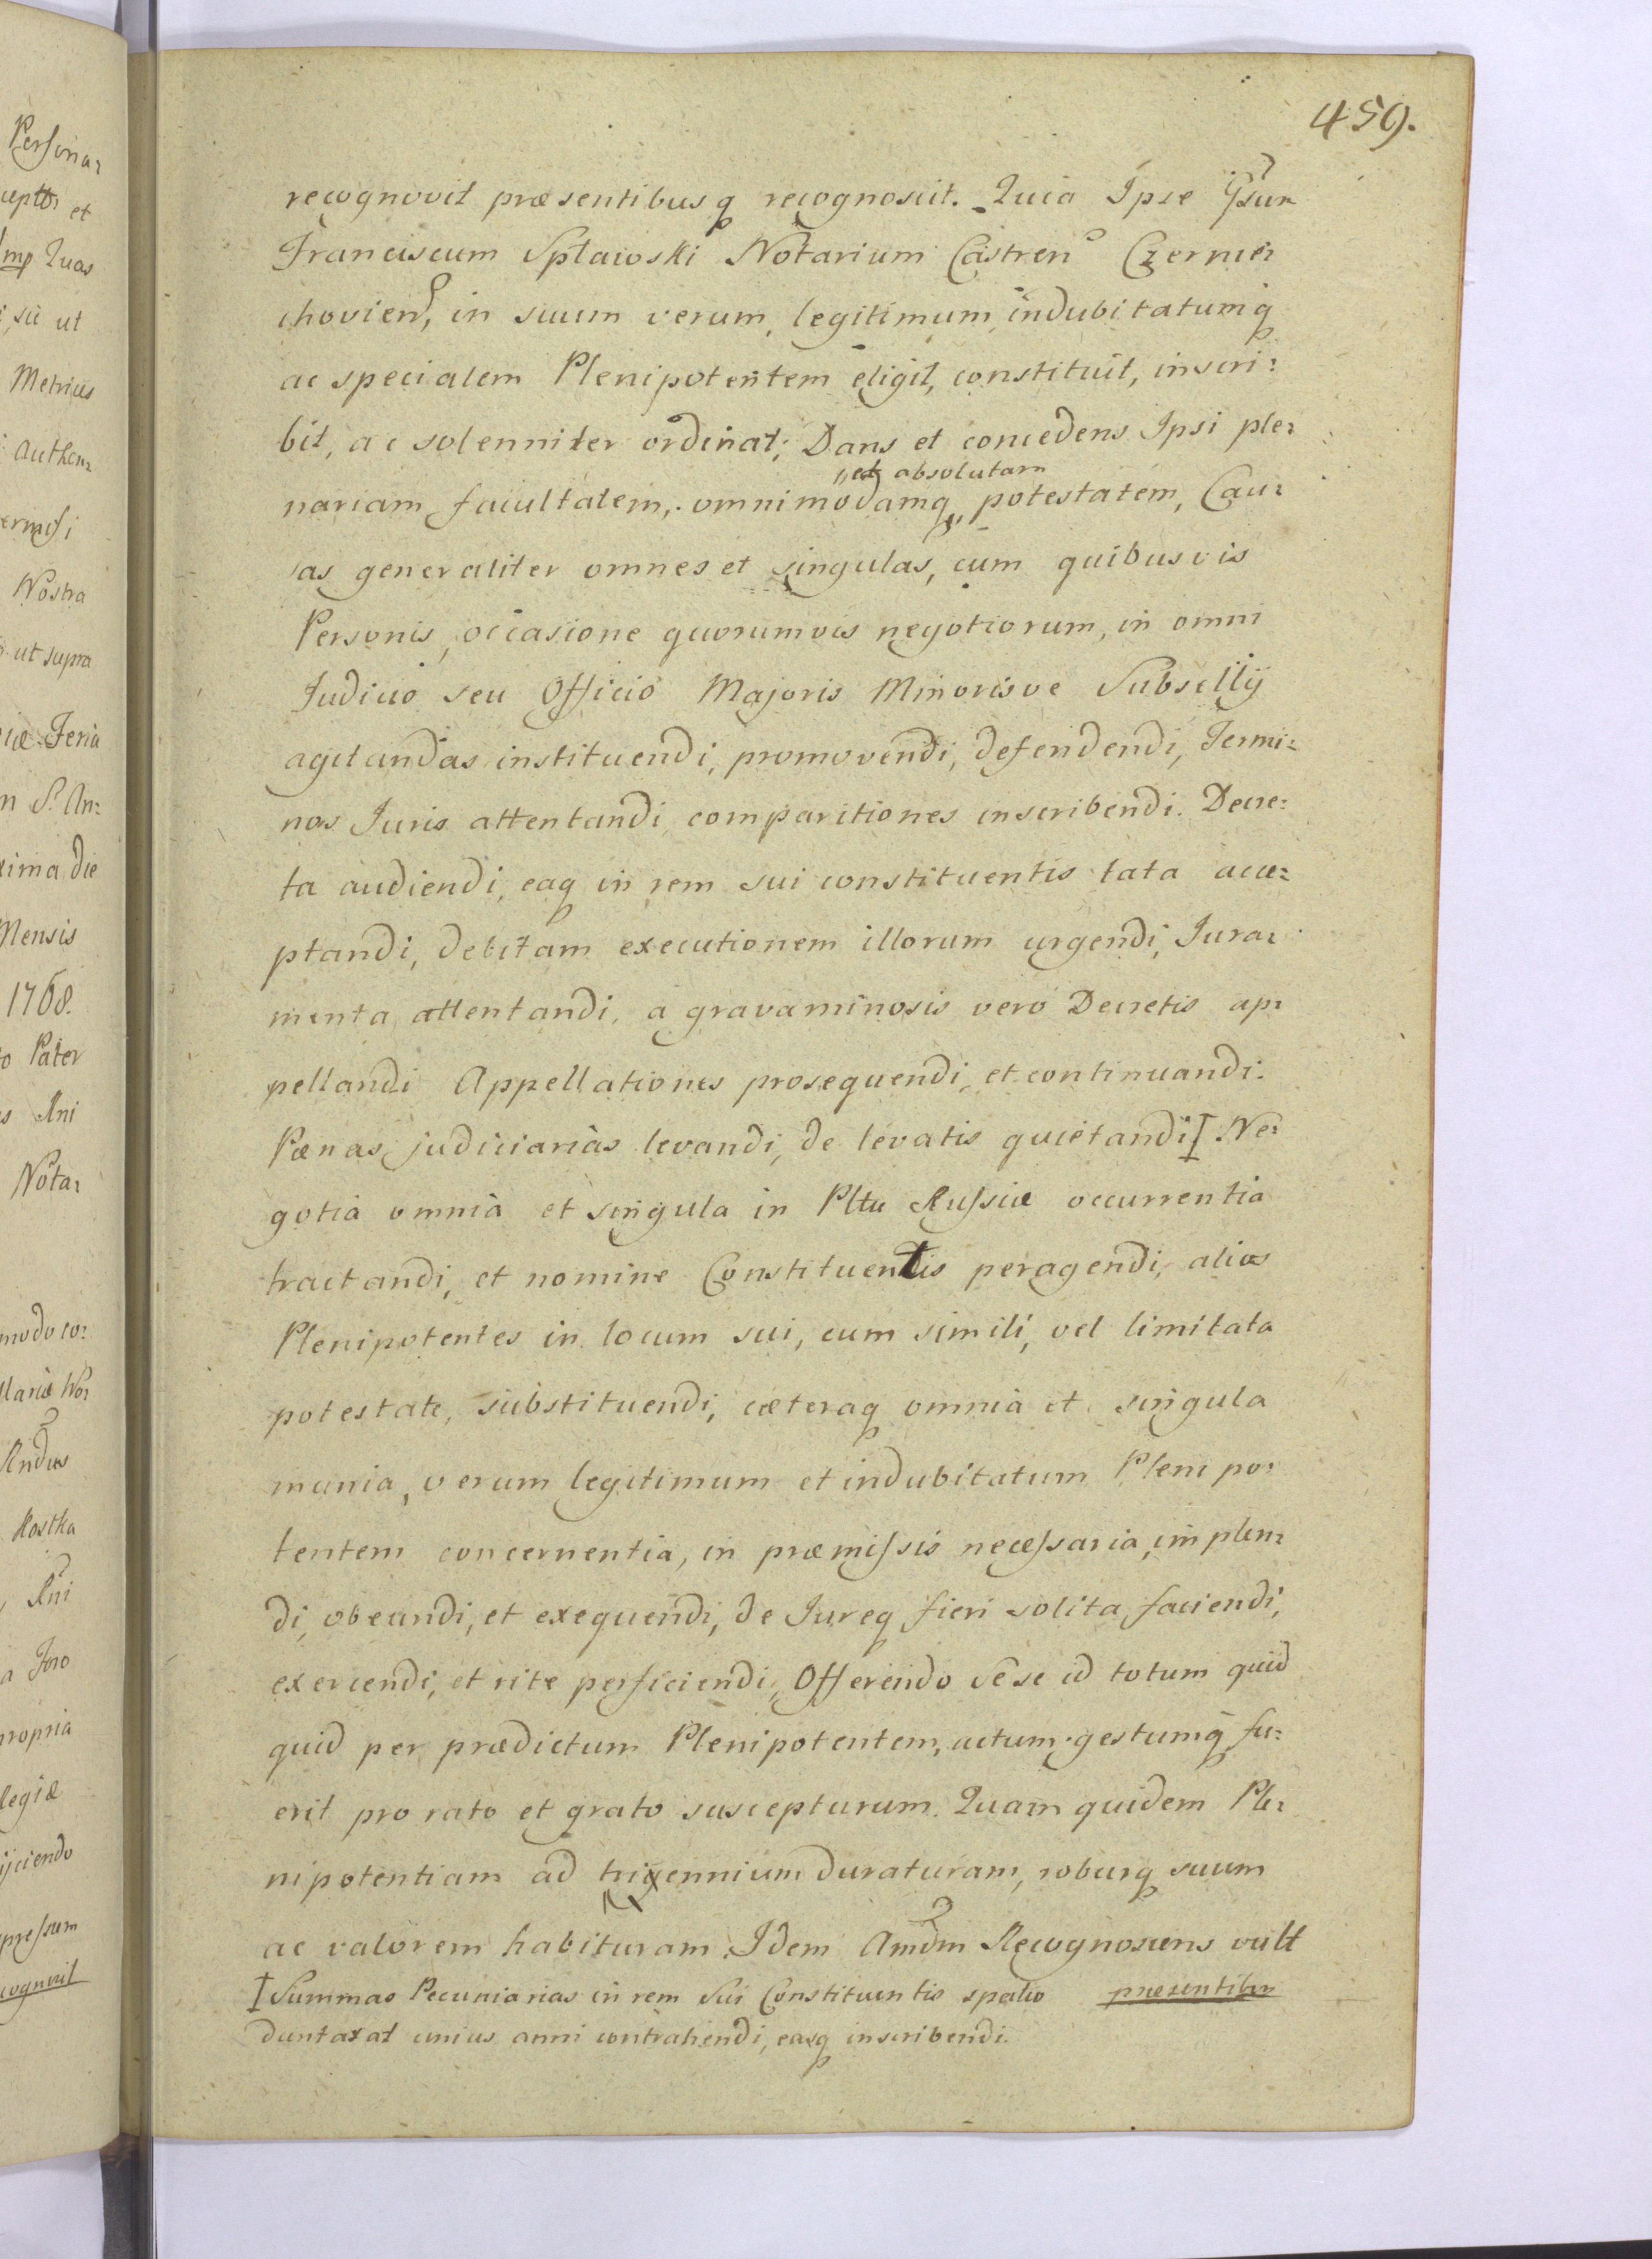 459.
recognovit præsentibusq recognoscit. Quia Ipse Gsum
Franciscum Spławski Notarium Castren Czernie:
chovien, in suum verum, legitimum, indubitatumq
ac specialem Plenipotentem eligit, constituit, inscri:
bit, ac solenniter ordinat; Dans et concedens Ipsi ple:
nariam facultatem, omnimodamq, et absolutam potestatem, Cau:
sas generaliter omnes et singulas, cum quibusvis
Personis, occasione quorumvis negotiorum, in omni
Judicio seu Officio Majoris Minorisve Subsellij
agitandas instituendi, promovendi, defendendi, Termi:
nos Juris attentandi, comparitiones inscribendi. Decre:
ta audiendi, eaq in rem sui constituentis lata acce:
ptandi, debitam executionem illorum urgendi, Jura:
menta attentandi, a gravaminosis vero Decretis ap:
pellandi Appellationes prosequendi, et continuandi.
Pœnas judiciarias levandi, de levatis quietandi Ɪ Ne:
gotia omnia et singula in Pltu Russiæ occurrentia
tractandi, et nomine Constituentis peragendi, alios
Plenipotentes in locum sui, cum simili, vel limitata
potestate, substituendi, cæteraq omnia et singula
munia, verum legitimum et indubitatum Plenipo:
tentem concernentia, in præmissis necessaria, implen:
di, obeundi, et exequendi, de Jureq fieri solita faciendi,
exercendi, et rite perficiendi, Offerendo se se id totum quid
quid per prædictum Plenipotentem, actum gestumq fu:
erit pro rato et grato suscepturum. Quam quidem Ple:
nipotentiam ad triennium duraturam, roburq suum
ac valorem habituram. Idem Amdm Recognoscens vult
Ɪ Summas Pecuniarias in rem Sui Constituentis spatio præsentibus
duntaxat unius anni contrahendi, easq inscribendi.